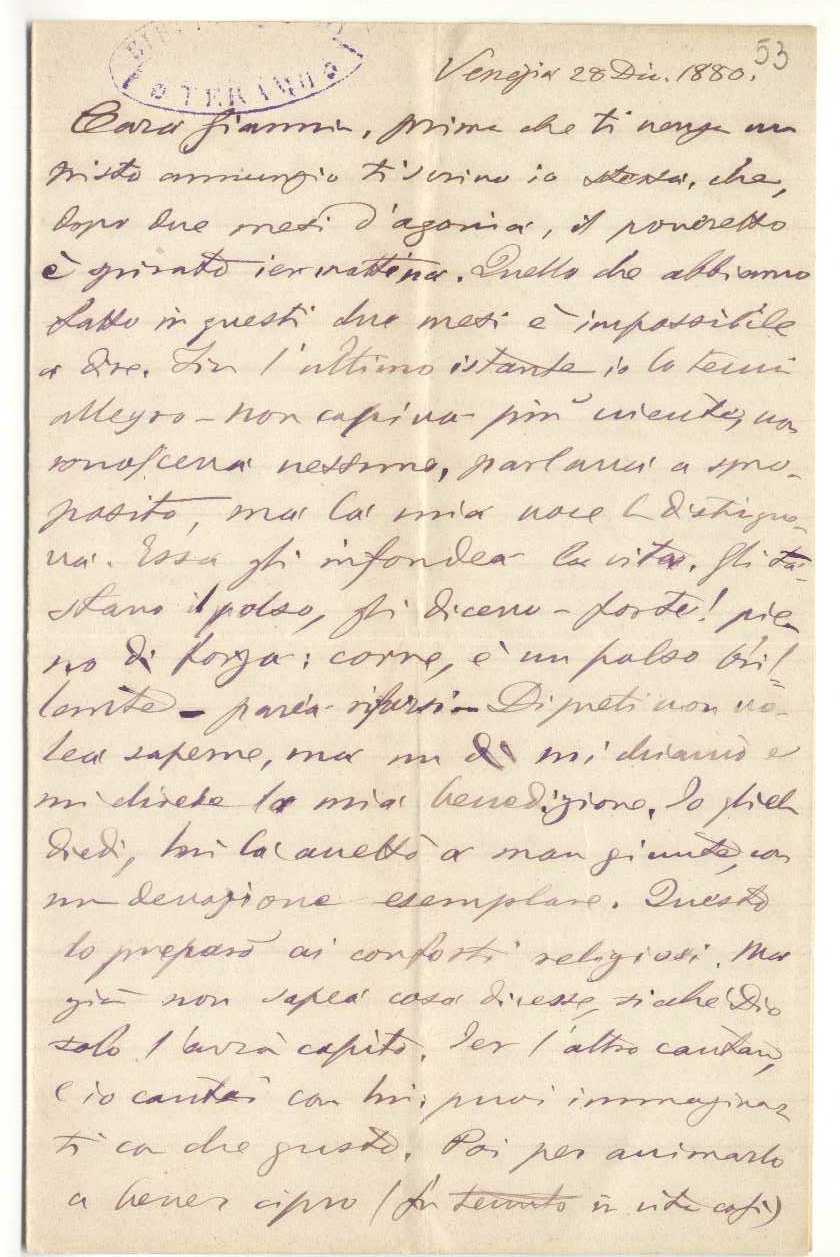 53
TERAMO
Venezia 28 Dic. 1880.
Cara Giannina, prima che ti venga un
tristo annunzio ti scrivo io stessa, che,
dopo due mesi d'agonia, il poveretto
è spirato iermattina. Quello che abbiamo
fatto in questi due mesi è impossibile
a dire. Fin l'ultimo istante io lo tenni
allegro – non capiva più niente, non
conosceva nessuno, parlava a spro-
posito, ma la mia voce la distingue-
va. Essa gli infondea la vita. Gli ta-
stavo il polso, gli dicevo – forte! pie
no di forza: corre, è un polso bril=
lante – parea rifarsi – Di preti non vo-
lea saperne, ma un dì mi chiamò e
mi chiese la mia benedizione. Io gliela
diedi, lui l'accettò a man giunte, con
un devozione esemplare. Questo
lo preparò ai conforti religiosi. Ma
già non sapea cosa dicesse, sicché Dio
solo l'avrà capito. Ier l'altro cantava,
e io cantai con lui: puoi immaginar
ti con che gusto. Poi per animarlo
a bever cipro (fu tenuto in vita così)